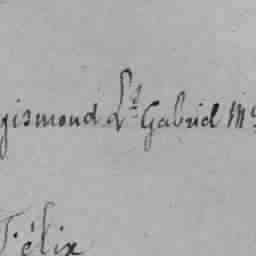 gismond Ls Gabriel Ms
Félix